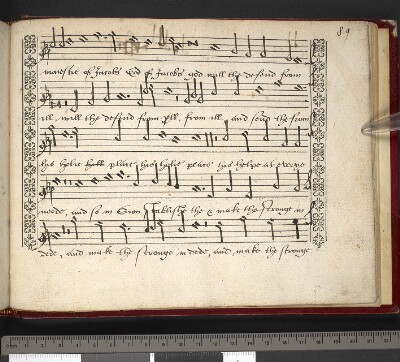 89
maiestie of Jacobs God of Jacobs god will the defend from
ill, will the defend from yll, from ill and send the from
his holie place his holie place his helpe at
neede, and so in Sion stablish the & make the stronge in
dede, and make the stronge in dede, and make the stronge